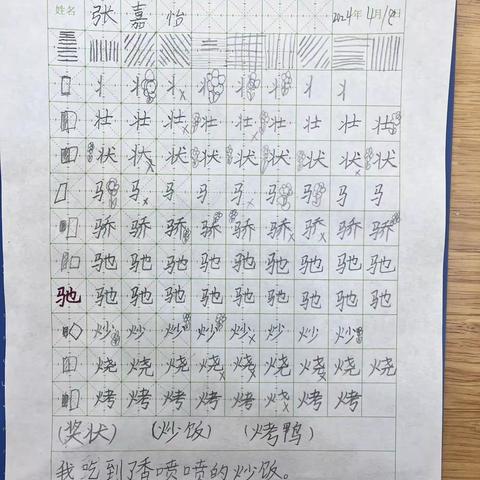 姓名 张嘉怡 2024年4月18日
丬 丬 丬 丬 丬 丬 丬 丬
壮 壮 壮 壮 壮 壮 壮 壮 壮
状 状 状 状 状 状 状 状 状
马 马 马 马 马 马 马 马 马
骄 骄 骄 骄 骄 骄 骄 骄 骄
驰 驰 驰 驰 驰 驰 驰 驰 驰
驰 驰 驰 驰 驰 驰 驰 驰 驰 驰
炒 炒 炒 炒 炒 炒 炒 炒
烧 烧 烧 烧 烧 烧 烧 烧 烧
烤 烤 烤 烤 烤 烤 烤 烤
(奖状) (炒饭) (烤鸭)
我吃到了香喷喷的炒饭。